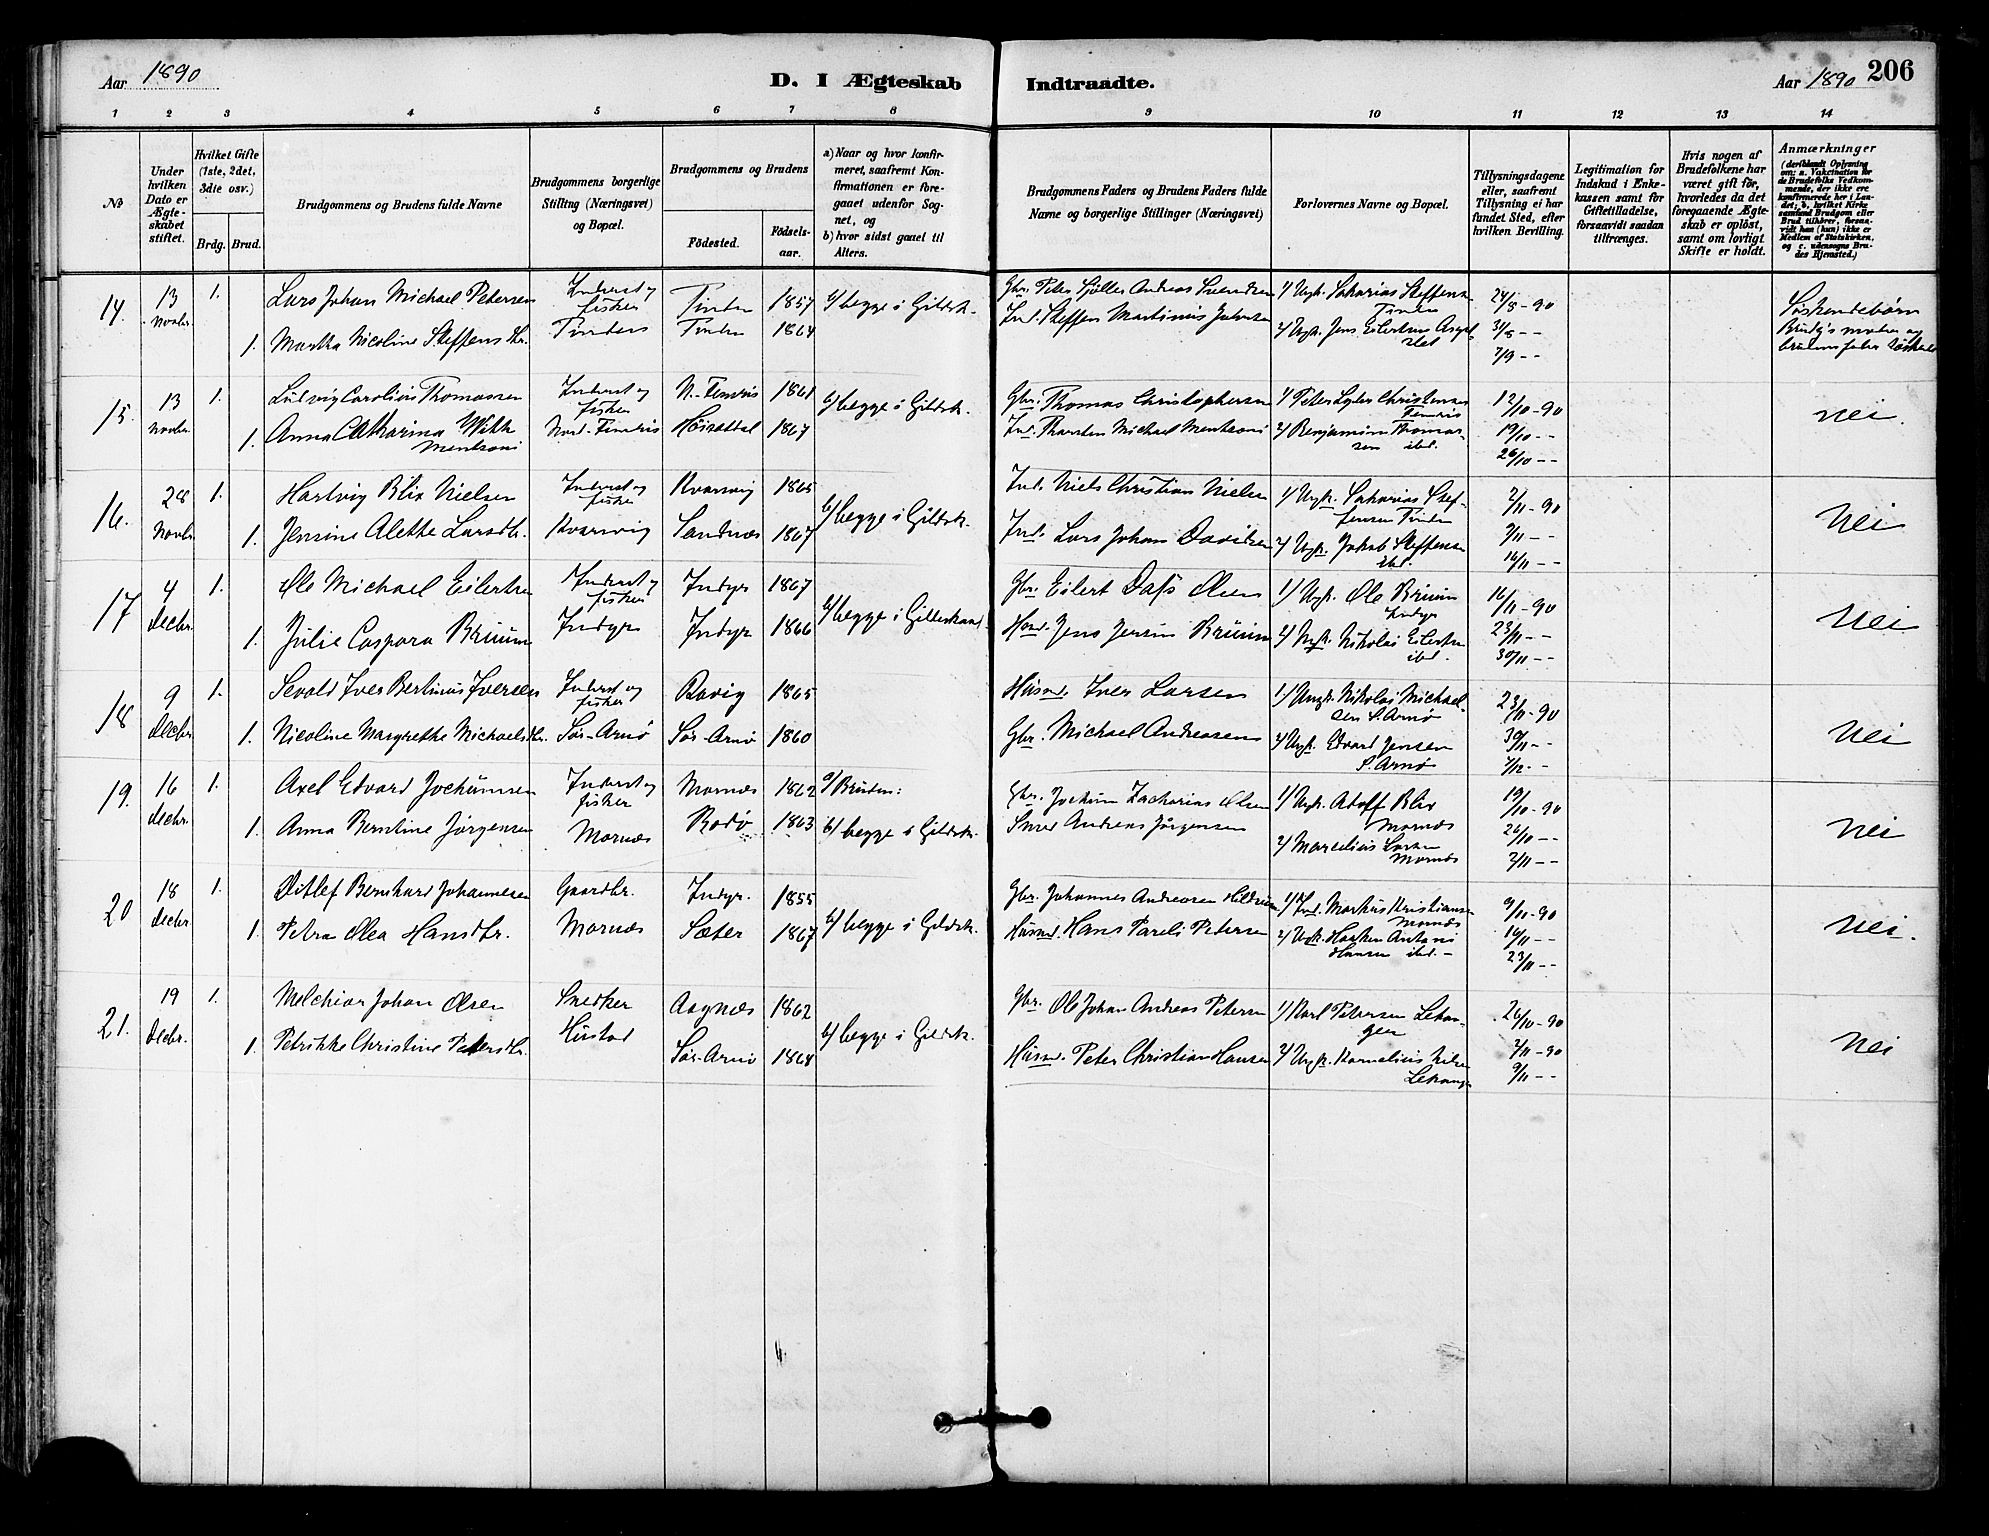 Aar 1890
D. I Ægteskab
Indtraadte.
Aar 1890
206
1 2 3 4 5 6 7 8 9 10 11 12 13 14
No
Under hvilken Dato er Ægteskabet stiftet.
Hvilket Gifte (1ste, 2det, 3die osv.)
Brdg. Brud.
Brudgommens og Brudens fulde Navne
Brudgommens borgerlige Stilling (Næringsvei) og Bopæl.
Brudgommens og Brudens
Födested.
Födselsaar.
a) Naar og hvor konfirmeret, saafremt Konfirmationen er foregaaet udenfor Sognet, og
b) hvor sidst gaaet til Alters.
Brudgommens Faders og Brudens Faders fulde Navne og borgerlige Stillinger (Næringsvei)
Forlovernes Navne og Bopæl.
Tillysningsdagene eller, saafremt Tillysning ei har fundet Sted, efter hvilken Bevilling.
Legitimation for Indskud i Enkekassen samt for Giftetilladelse, forsaavidt saadan tiltrænges.
Hvis nogen af Brudefolkene har været gift för, hvorledes da det foregaaende Ægteskab er oplöst, samt om lovligt Skifte er holdt.
Anmærkninger
(deriblandt Oplysning om: a. Vaccination for de Brudefolks Vedkommende, der ikke ere konfirmerede her i Landet; b. hvilket Kirkesamfund Brudgom eller Brud tilhörer, forsaavidt han (hun) ikke er Medlem af Statskirken, og c. udensogns Brudes Hjemsted.)
14. 13 Novbr. 1. Lars Johan Michael Petersen Inderst og fisker Tinden 1857 b/ begge i Gildsk. Gbr. Peter Andreas Svendsen 1/ Ungk. Sakarias Steffensen Tinden 24/8-90 Söskendebörn
1. Martha Nicoline Steffensdtr. Tinden Tinden 1864 Ind. Steffen Martinus Johnsen 2/ Ungk. Jens Eilertsen 31/8 -- Brudg's moder og
7/9 -- brudens fader
15. 13 Novbr. 1. Ludvig Carolius Thomassen Inderst og fisker 1861 b/ begge i Gildsk. Gbr. Thomas Christophersen 1/ Peter Christensen 12/10-90 nei.
1. Anna Catharina Mentsoni 1867 Ind. Thorsten Michael Mentsoni 2/ Benjamin Thomassen ibd. 19/10 --
26/10 --
16. 28 Novbr. 1. Hartvig Blix Nielsen Inderst og fisker Kvarsvig 1865 b/ begge i Gildsk. Ind. Niels Christian Nielsen 1/ Ungk. Sakarias Steffensen Tinden 2/11-90 Nei
1. Jensine Alette Larsdtr. Kvarsvig Sandnæs 1867 Ind. Lars Johan Davidsen 2/ Ungk. Jakob Steffensen ibd. 9/11 --
16/11 --
17 4 Decbr. 1. Ole Michael Eilertsen Inderst og fisker Indyr 1867 b/ begge i Gildeskaal. Gbr. Eilert Dass Olsen 1/ Ungk. Ole Bruun Indyr 16/11-90 Nei
1. Julie Caspara Bruun Indyr Indyr 1866 Jens Jensen Bruun 2/ Ungk. Nikolai Eilertsen ibd. 23/11 --
30/11 --
18 9 Decbr. 1. Sevald Iver Bertinus Iversen Inderst og fisker 1865 Husmd. Iver Larsen 1/ Ungk. Nikolai Michaelsen S. Arnø 23/11-90 Nei
1. Nicoline Margrethe Michaelsdtr. Sør-Arnø Sør-Arnø 1860 Gbr. Michael Andreasen 2/ Ungk. Edvard Jensen S. Arnø 30/11 --
7/12 --
19. 16 Decbr. 1. Axel Edvard Jochumsen Inderst og fisker Mornæs 1862 a/ Bruden: Gbr. Jochum Zacharias Olsen 1/ Ungk. Adolf Blix Mornæs 19/10-90 Nei
1. Anna Berntine Jørgensen Mornæs Bodø 1863 b/ begge i Gildsk. Smed Andreas Jørgensen 2/ Marcelius Larsen Mornæs 26/10 --
2/11 --
20 18 Decbr. 1. Ditlef Bernhard Johannesen Gaardbr. Indyr. 1855 b/ begge i Gildsk. Gbr. Johannes Andreasen 1/ Ind. Markus Kristiansen Mornæs 9/11-90 Nei.
1. Petra Olea Hansdtr. Mornæs Sæter 1867 Husmd. Hans Pareli Petersen 2/ Ungk. Haaken Antoni Hansen ibd. - 16/11 --
23/11 --
21. 19 Decbr. 1. Melchior Johan Olsen Snedker Aagnæs 1862 b/ begge i Gildsk. Gbr. Ole Johan Andreas Petersen 1/ Karl Petersen Lekangen 26/10-90 Nei
1. Petrikke Christine Petersdtr. Hustad Sør-Arnø 1868 Husmd. Peter Christian Hansen 2/ Ungk. Kornelius 2/11-90
9/11 --